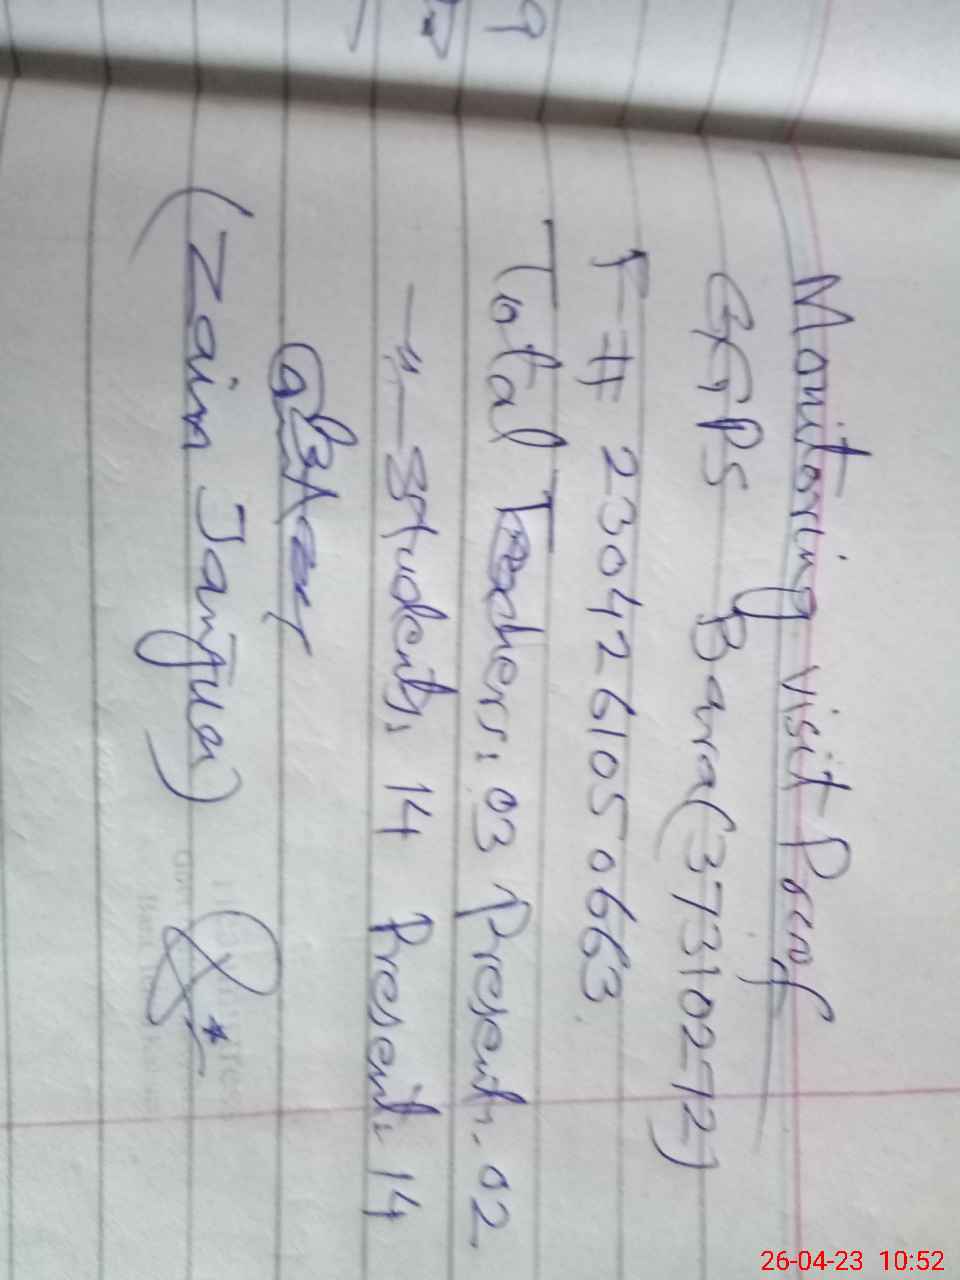 Monitoring visit Poof
GGPS Bara (37310272)
F# 2304261050663
Total Teachers: 03 Present: 02
—"— Students: 14 Present: 14
(Zain Janjua)
26-04-23 10:52